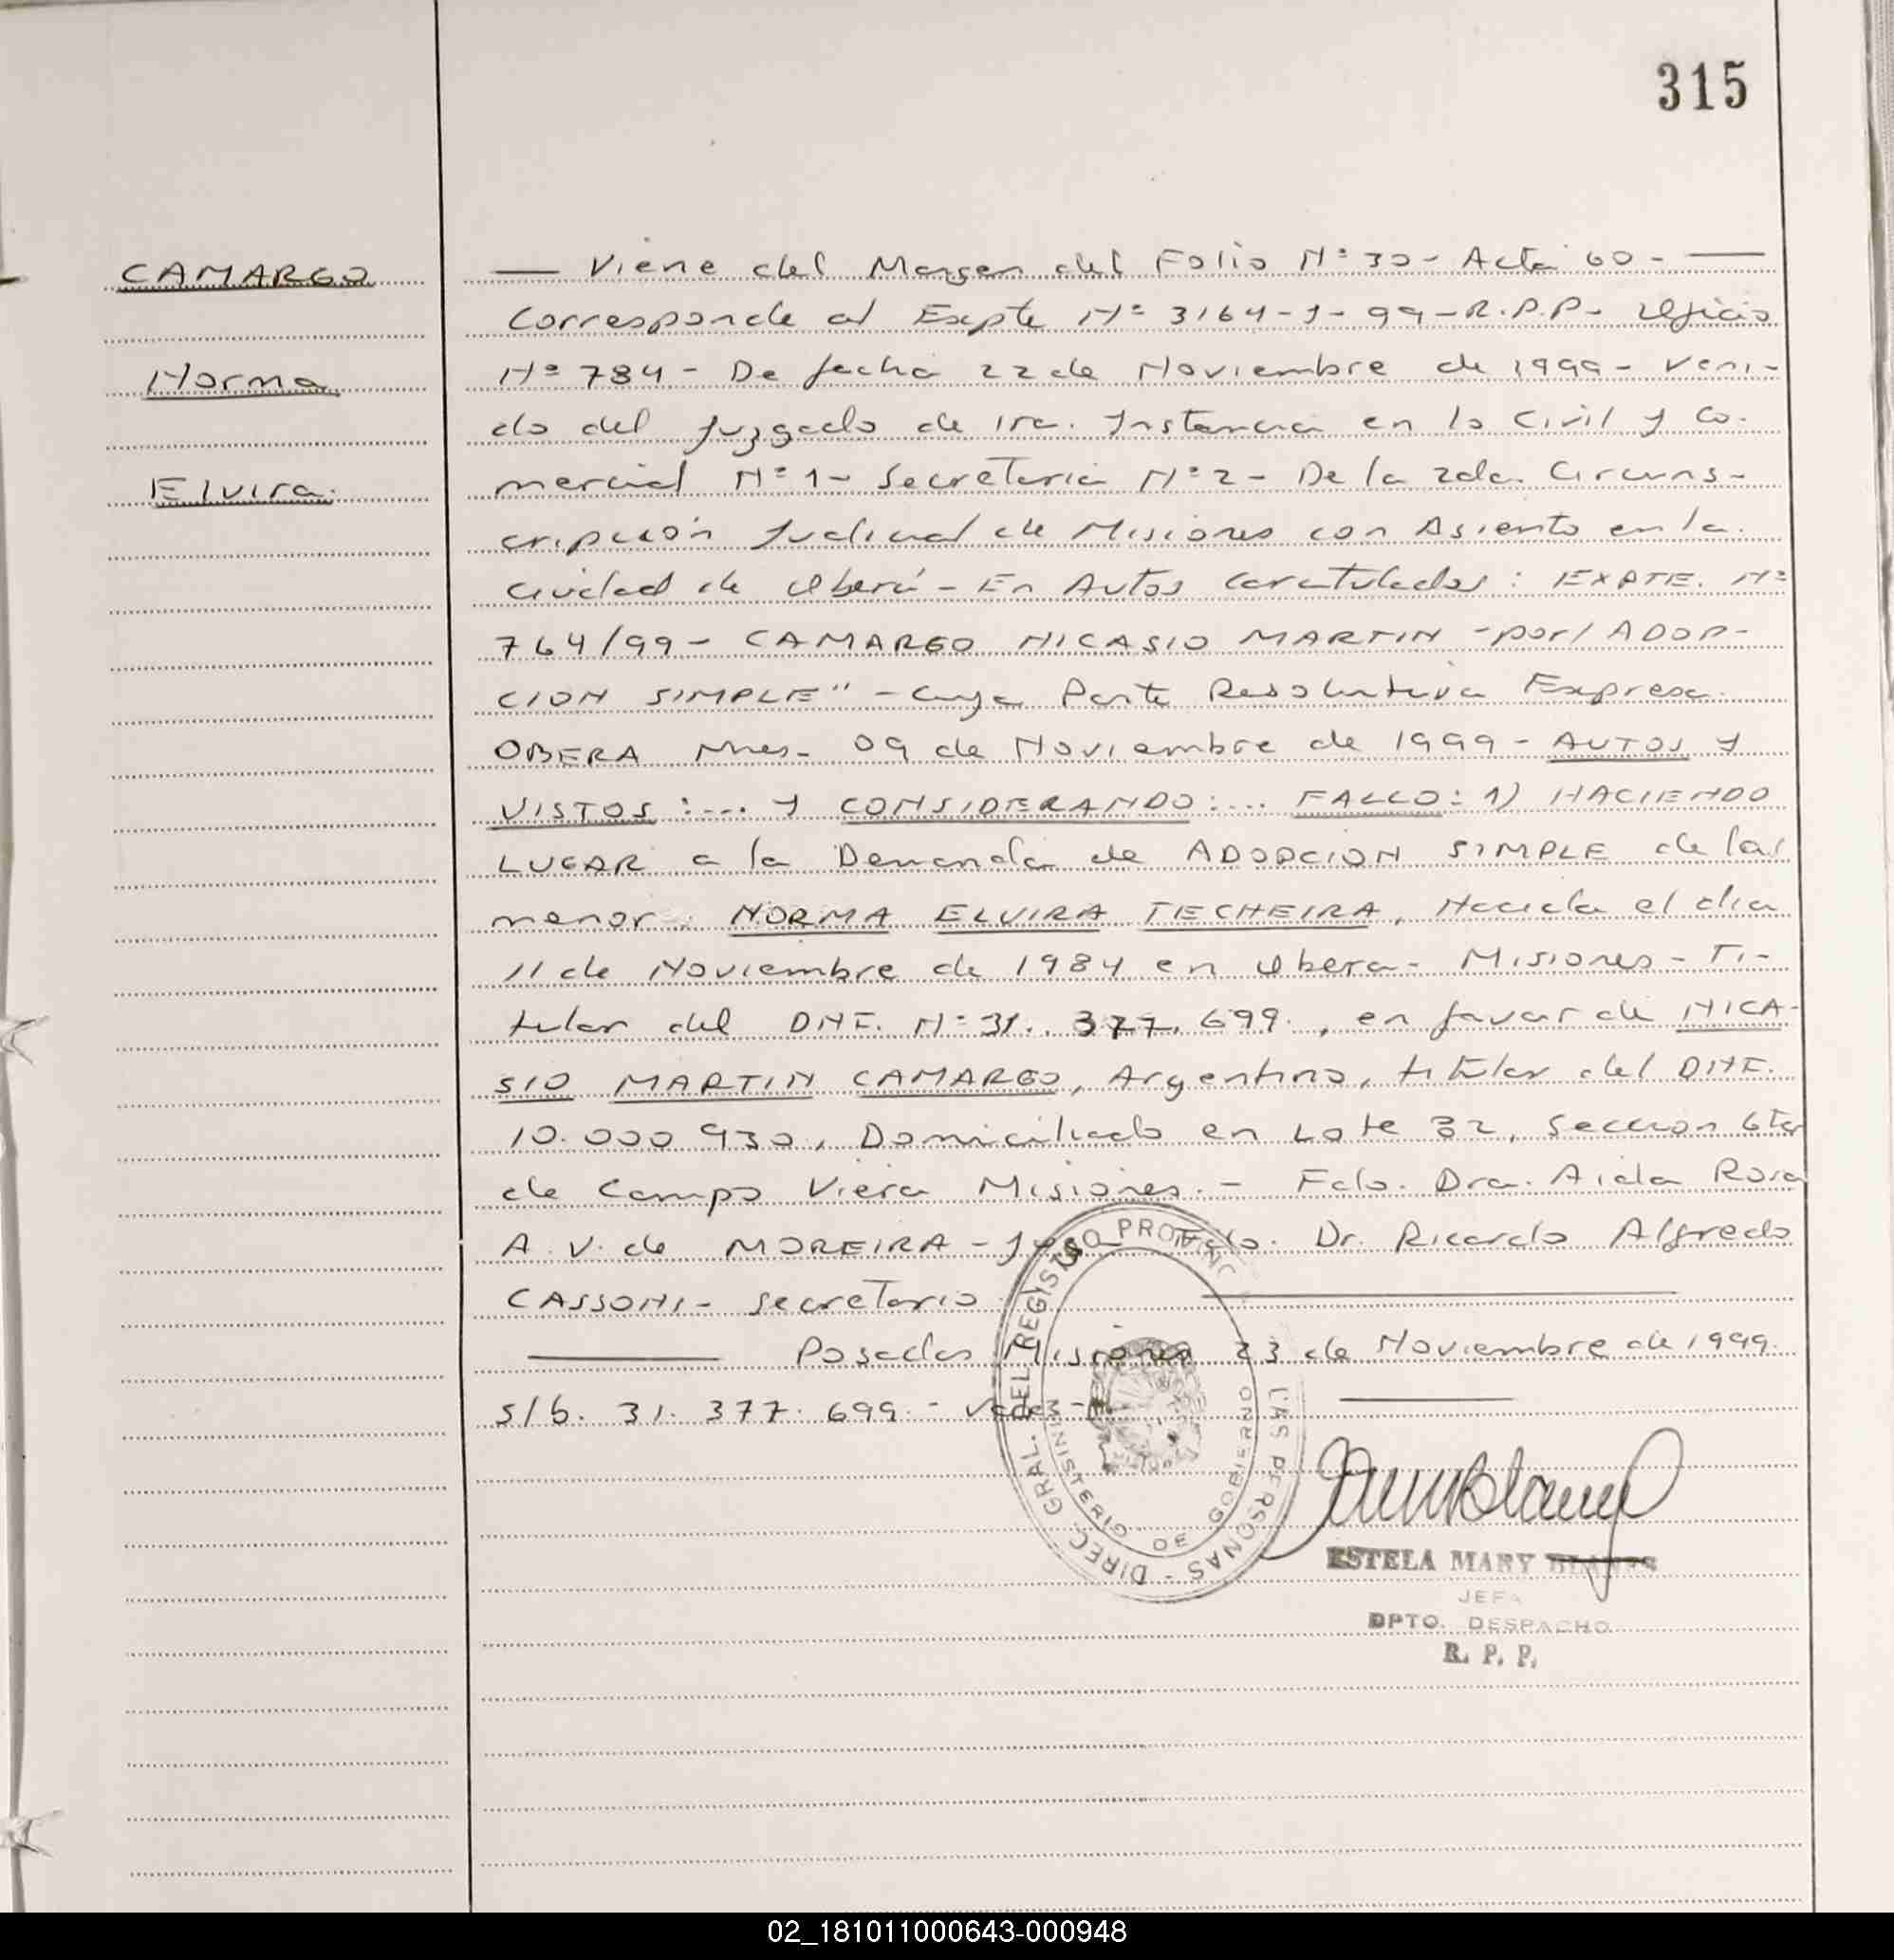 315
CAMARGO
Norma
Elvira.
Viene del Margen del Folio Nº 30 - Acta 60 -
Corresponde al Expte Nº 3164-J-99-R.P.P- Oficio
Nº 784 - De fecha 22 de Noviembre de 1999 - Veni-
do del Juzgado de 1ra. Instancia en lo Civil y Co-
mercial Nº 1 - Secretaria Nº 2 - De la 2da. Circuns-
cripción Judicial de Misiones con Asiento en la
Ciudad de Oberá - En Autos Caratulados: EXPTE. Nº
764/99 - CAMARGO NICASIO MARTIN - por/ ADOP-
CION SIMPLE" - Cuya Parte Resolutiva Expresa:
OBERA Mnes- 09 de Noviembre de 1999 - AUTOS Y
VISTOS:.... Y CONSIDERANDO:.... FALLO: 1) HACIENDO
LUGAR a la Demanda de ADOPCION SIMPLE de la
menor: NORMA ELVIRA TECHEIRA, Nacida el dia
11 de Noviembre de 1984 en Obera - Misiones - Ti-
tular del DNI. Nº 31. 377. 699., en favor de NICA-
SIO MARTIN CAMARGO, Argentino, titular del DNI.
10.000.930, Domiciliado en Lote 32, Seccion 6ta
de Campo Viera Misiones. - Fdo. Dra. Aida Rosa
A. V. de MOREIRA - Fdo. Dr. Ricardo Alfredo
CASSONI - Secretario
Posadas Misiones 23 de Noviembre de 1999.
s/b. 31. 377. 699. -
DIREC. GRAL. DEL REGISTRO PROVINC LAS PERSONAS -
MINISTERIO DE GOBIERNO
ESTELA MARY
JEFA
DPTO. DESPACHO
R. P. P.
02_181011000643-000948